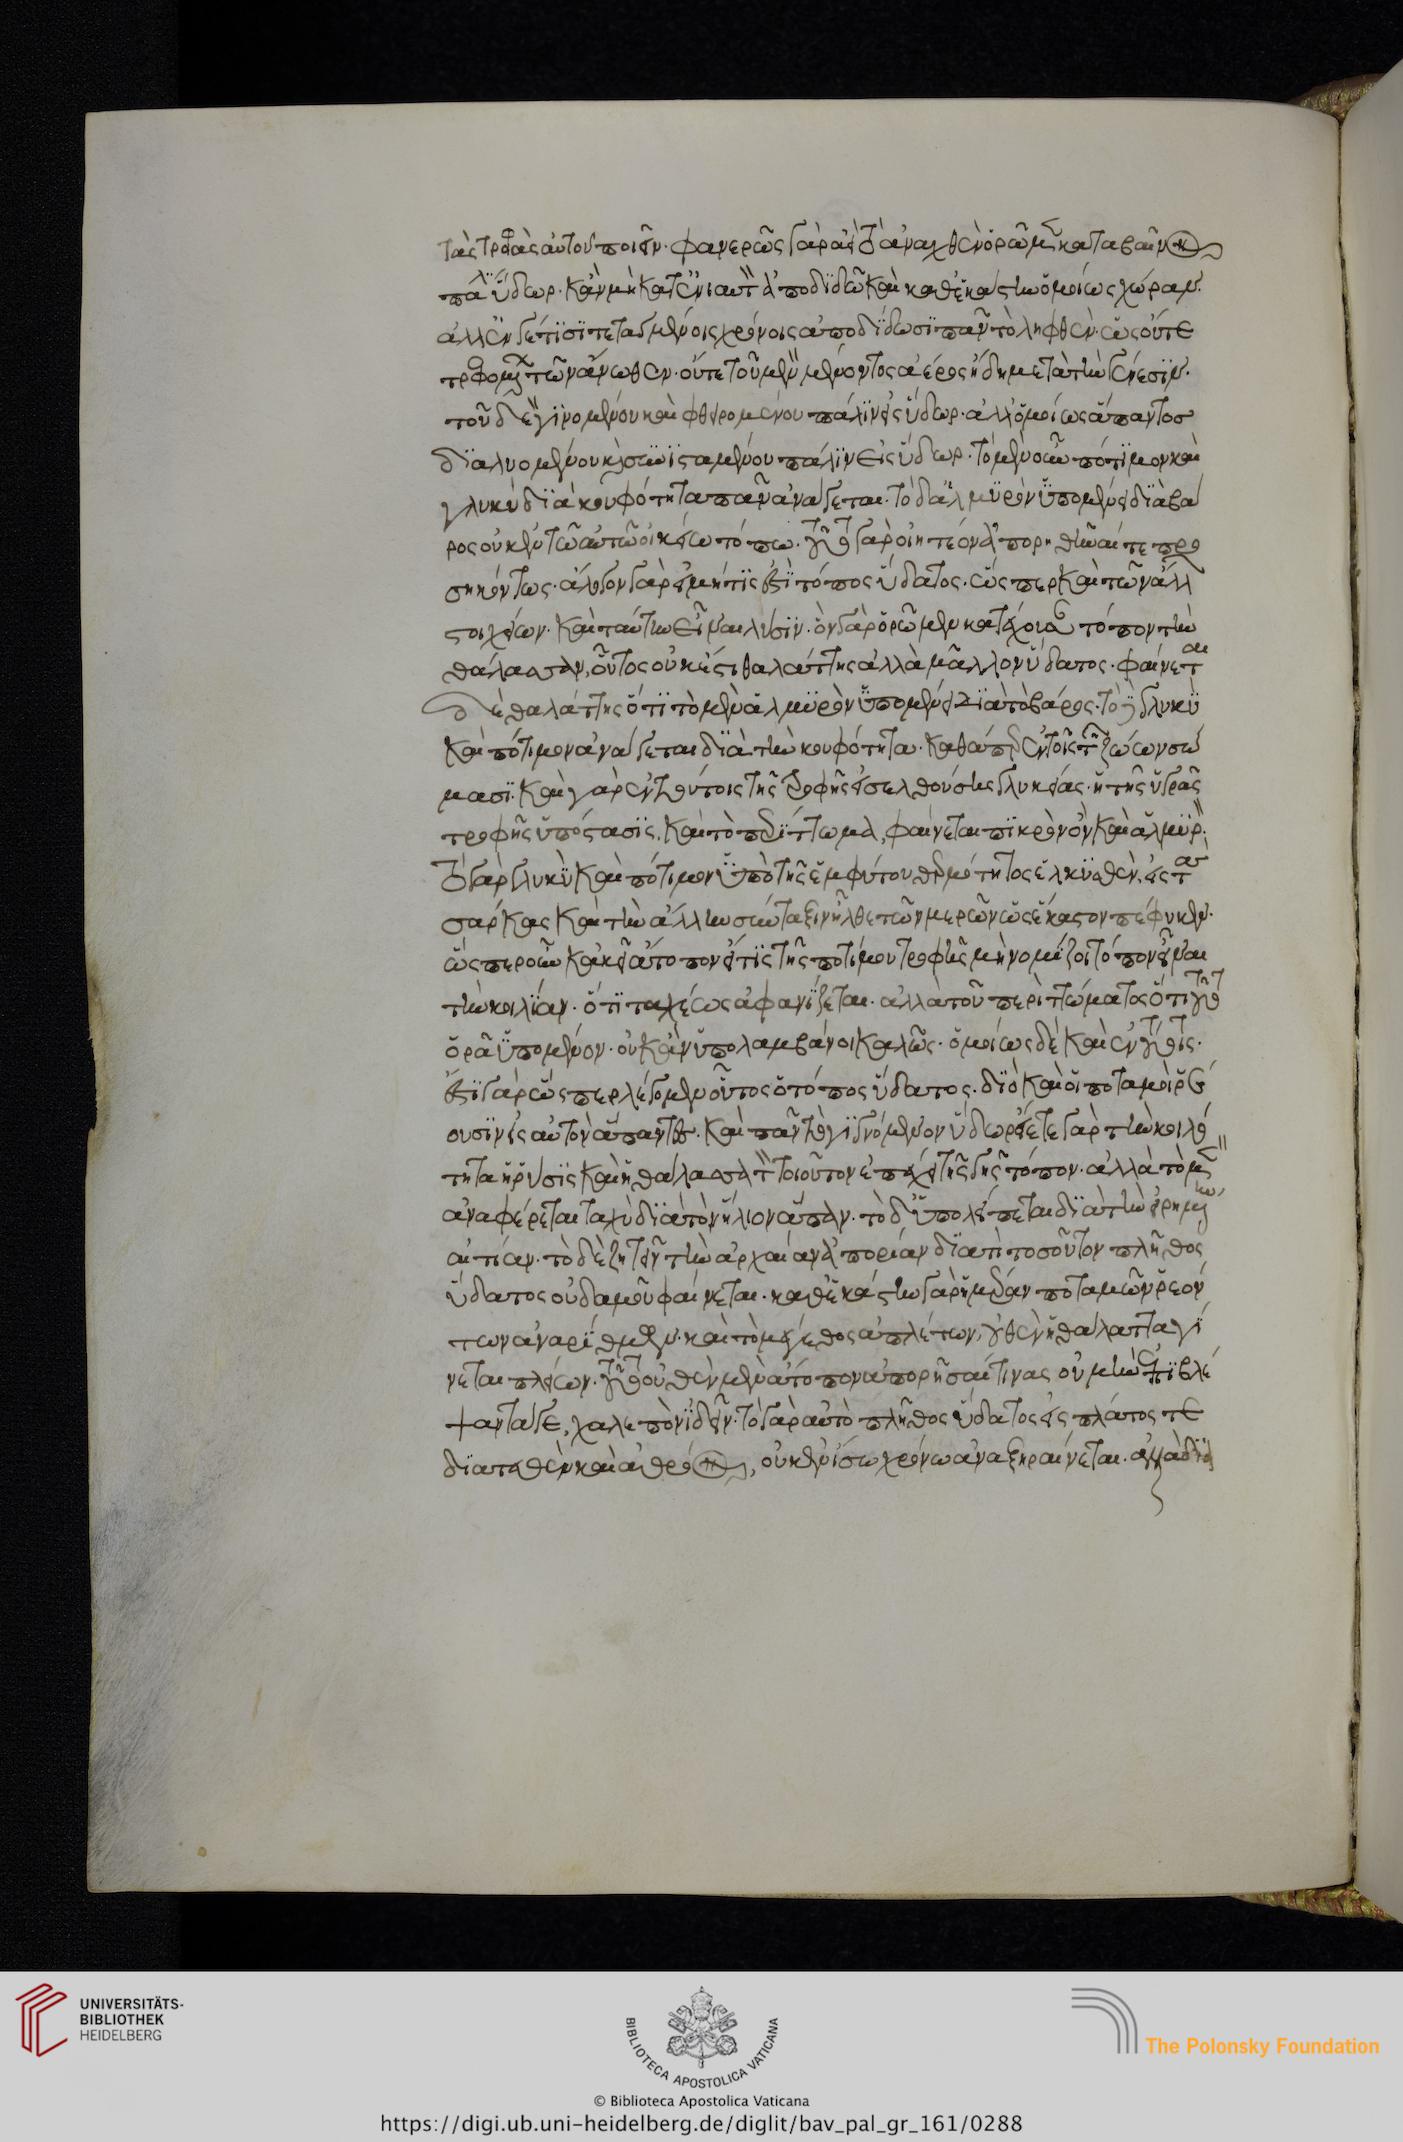 τὰς τροφὰς αὐτοῦ ποιεῖν· φανερῶς γὰρ ἀεὶ τὸ ἀναχθὲν ὁρῶμεν καταβαῖνον
πάλιν ὕδωρ· κἂν μὴ κατ' ἐνιαυτὸν ἀποδιδῶ καὶ καθ' ἑκάστην ὁμοίως χώραν·
ἀλλ' ἔν γέ τισι τεταγμένοις χρόνοις ἀποδίδωσι πᾶν τὸ ληφθέν· ὡς οὔτε
τρεφομένων τῶν ἄνωθεν· οὔτε τοῦ μὲν μένοντος ἀέρος ἤδη μετὰ τὴν γένεσιν·
τοῦ δὲ γινομένου καὶ φθειρομένου πάλιν εἰς ὕδωρ· ἀλλ' ὁμοίως ἅπαντος
διαλυομένου καὶ συνισταμένου πάλιν εἰς ὕδωρ· τὸ μὲν οὖν πότιμον καὶ
γλυκὺ διὰ κουφότητα πᾶν ἀνάγεται· τὸ δ' ἁλμυρὸν ὑπομένει διὰ βά
ρος οὐκ ἐν τῶ αὐτῶ οἰκείω τόπω· τοῦτο γὰρ οἰητέον ἀπορηθῆναί τε προ
σηκόντως· ἄλογον γὰρ εἰ μή τις ἐστὶ τόπος ὕδατος· ὥσπερ καὶ τῶν ἄλλων
στοιχείων· καὶ ταύτην εἶναι λύσιν· ὃν γὰρ ὁρῶμεν κατέχουσαν τόπον τὴν
θάλασσαν, οὗτος οὐκ ἔστι θαλάττης ἀλλὰ μᾶλλον ὕδατος· φαίνεται
δὲ θαλάττης ὅτι τὸ μὲν ἁλμυρὸν ὑπομένει διὰ τὸ βάρος· τὸ δὲ γλυκὺ
καὶ πότιμον ἀνάγεται διὰ τὴν κουφότητα· καθάπερ ἐν τοῖς τῶν ζώων σώ
μασι· καὶ γὰρ ἐν τούτοις τῆς τροφῆς εἰσελθούσης γλυκείας· ἡ τῆς ὑγρᾶς
τροφῆς ὑπόστασις, καὶ τὸ περίττωμα, φαίνεται πικρὸν ὂν καὶ ἁλμυρόν·
τὸ γὰρ γλυκὺ καὶ πότιμον ὑπὸ τῆς ἐμφύτου θερμότητος ἑλκυσθὲν, εἰς τὰς
σάρκας καὶ τὴν ἄλλην σύνταξιν ἦλθε τῶν μερῶν ὡς ἕκαστον πέφυκεν·
ὥσπερ οὖν κἀκεῖ ἄτοπον εἴ τις τῆς ποτίμου τροφῆς μὴ νομίζοι τόπον εἶναι
τὴν κοιλίαν· ὅτι ταχέως ἀφανίζεται· ἀλλὰ τοῦ περιττώματος ὅτι τοῦτο
ὁρᾶ ὑπομένον· οὐκ ἂν ὑπολαμβάνοι καλῶς· ὁμοίως δὲ καὶ ἐν τούτοις·
ἔστι γὰρ ὥσπερ λέγομεν οὗτος ὁ τόπος ὕδατος· διὸ καὶ οἱ ποταμοὶ ῥέ
ουσιν εἰς αὐτὸν ἅπαντες· καὶ πᾶν τὸ γιγνόμενον ὕδωρ· εἴς τε γὰρ τὴν κοιλό
τητα ἡ ῥύσις καὶ ἡ θάλασσα τὸν τοιοῦτον ἐπέχει τῆς γῆς τόπον· ἀλλὰ τὸ μὲν
ἀναφέρεται ταχὺ διὰ τὸν ἥλιον ἅπαν· τὸ δ' ὑπολείπεται διὰ τὴν εἰρημένην
αἰτίαν· τὸ δὲ ζητεῖν τὴν ἀρχαίαν ἀπορίαν διὰ τί τοσοῦτον πλῆθος
ὕδατος οὐδαμοῦ φαίνεται· καθ' ἑκάστην γὰρ ἡμέραν ποταμῶν ῥεόν
των ἀναρίθμων· καὶ τὸ μέγεθος ἀπλέτων, οὐθὲν ἡ θάλαττα γί
νεται πλείων· τοῦτο οὐθὲν μὲν ἄτοπον ἀπορῆσαί τινας οὐ μὴν ἐπιβλέ
ψαντά γε, χαλεπὸν ἰδεῖν· τὸ γὰρ αὐτὸ πλῆθος ὕδατος εἰς πλάτος τε
διαταθὲν καὶ ἀθρόον, οὐκ ἐν ἴσω χρόνω ἀναξηραίνεται· ἀλλὰ δια
UNIVERSITÄTS-
BIBLIOTHEK
HEIDELBERG
BIBLIOTECA APOSTOLICA VATICANA
The Polonsky Foundation
© Biblioteca Apostolica Vaticana
https://digi.ub.uni-heidelberg.de/diglit/bav_pal_gr_161/0288